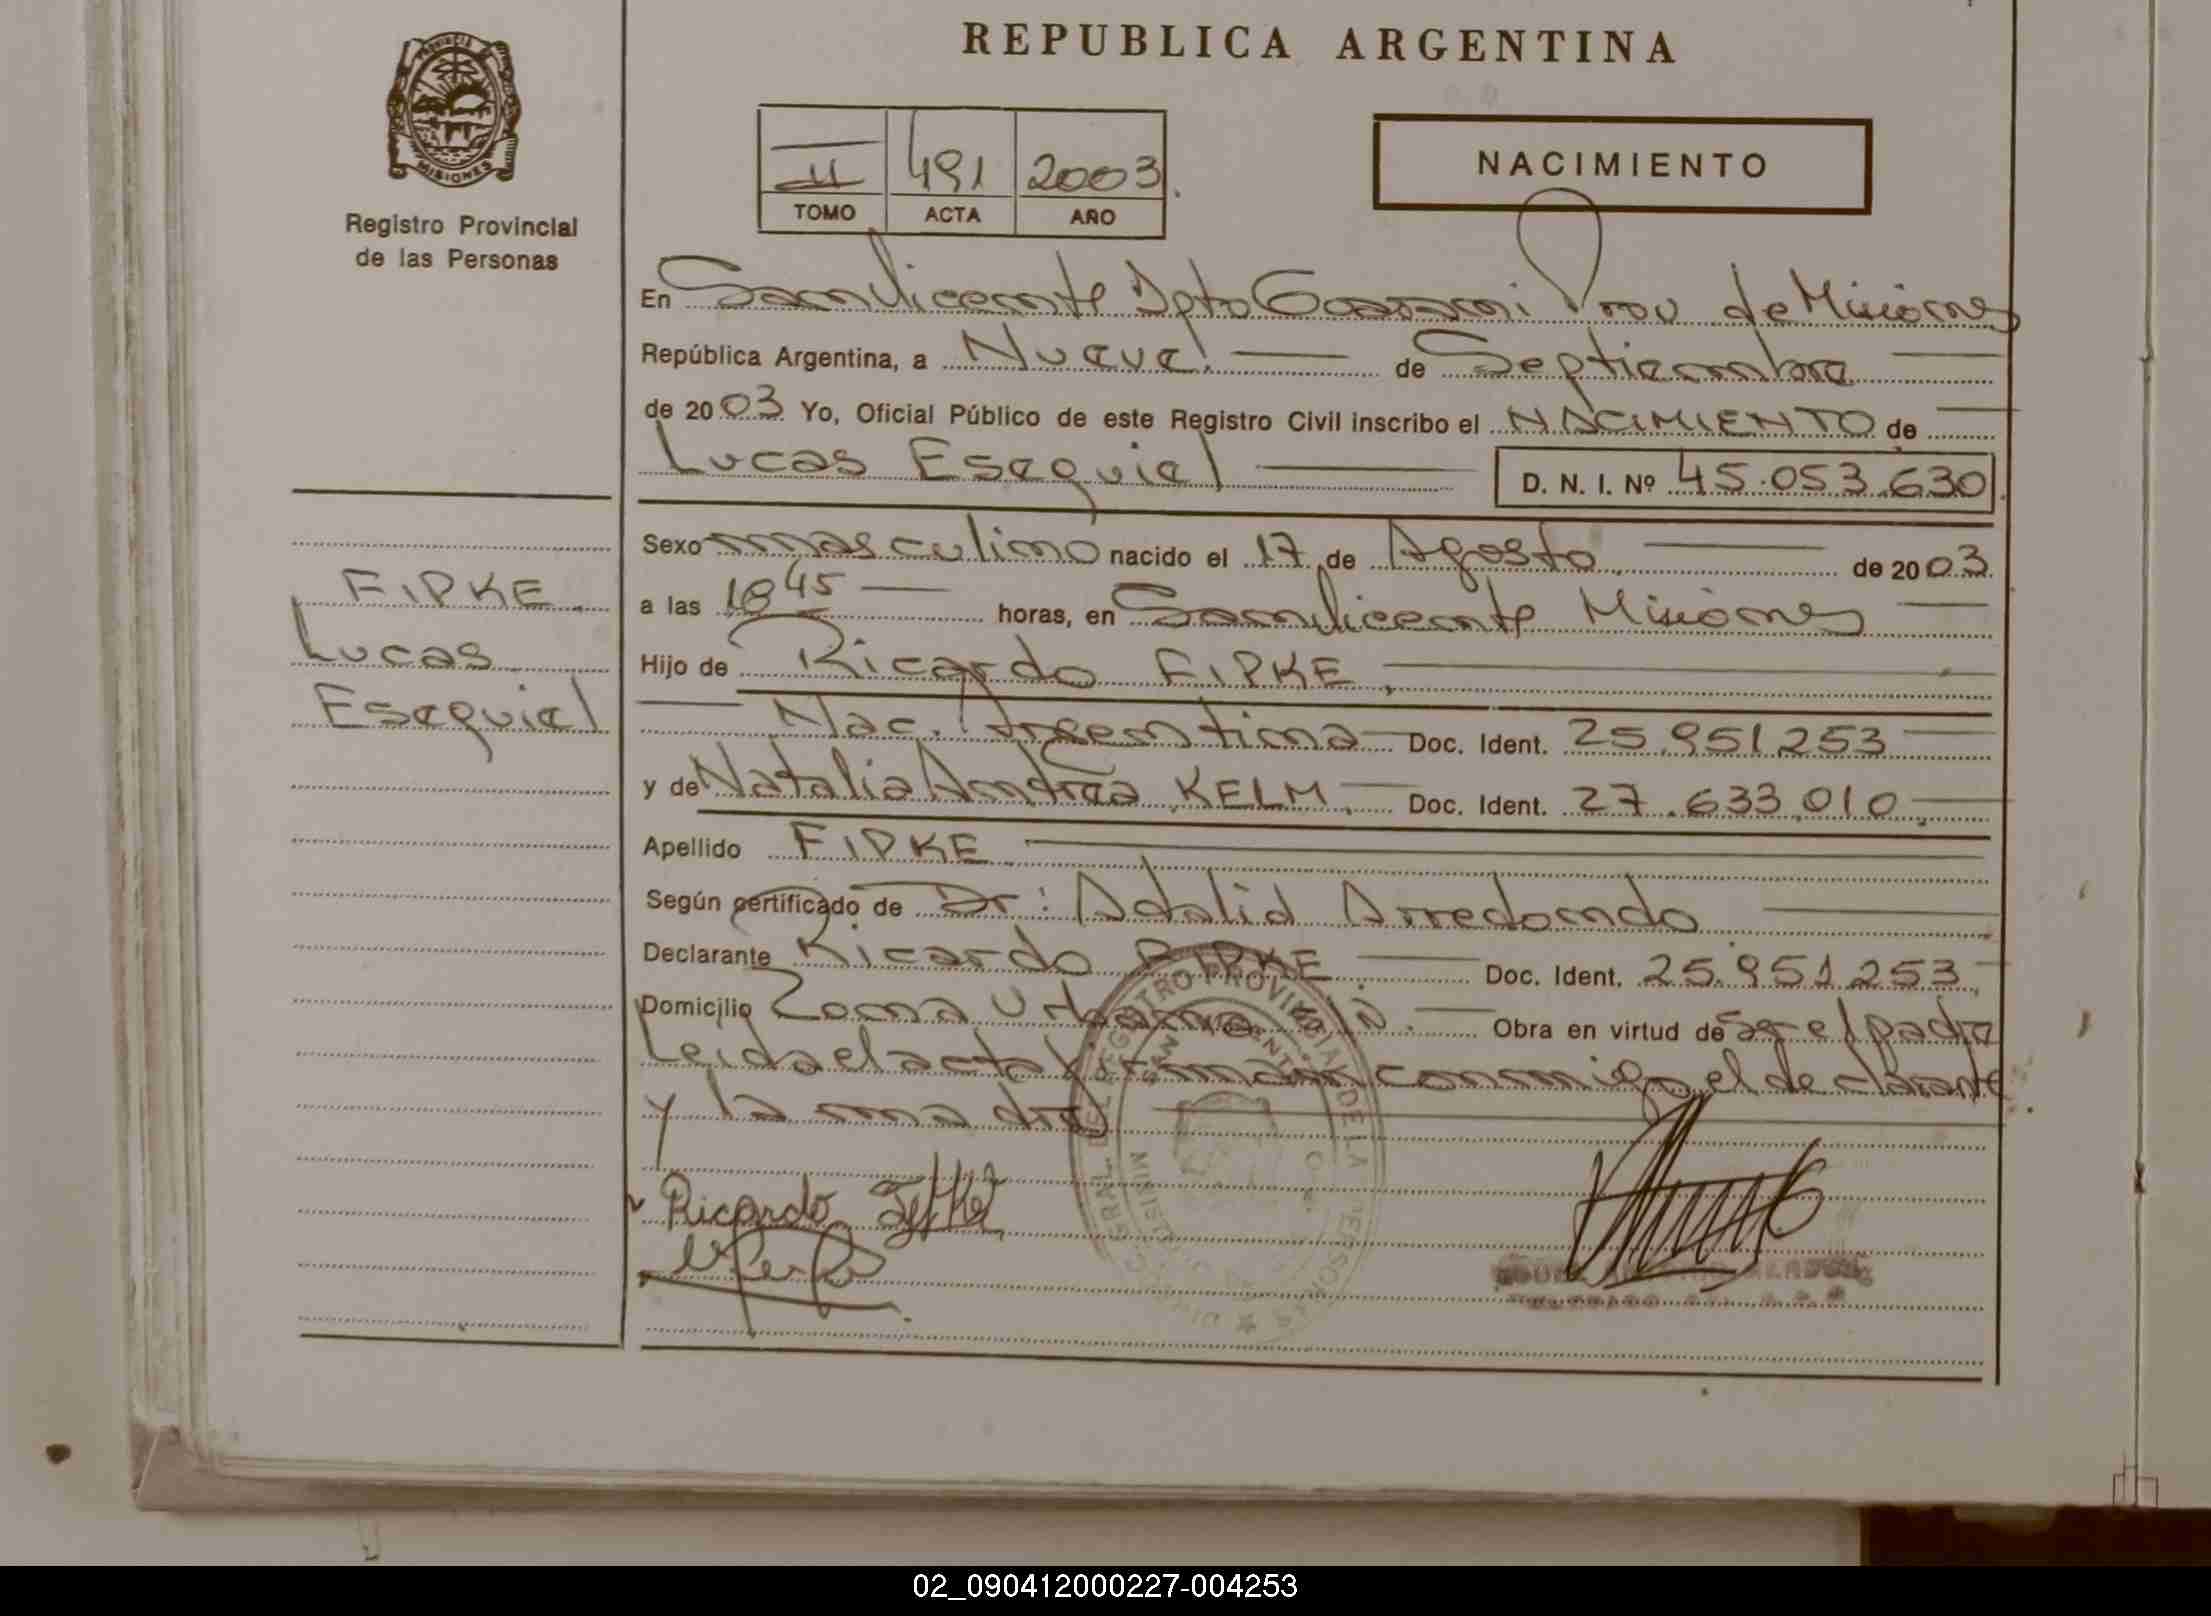 REPUBLICA ARGENTINA
PROVINCIA
MISIONES
Registro Provincial
de las Personas
II 491 2003
TOMO ACTA AÑO
NACIMIENTO
En San Vicente Dpto Guarani Prov de Misiones
República Argentina, a Nueve. de Septiembre
de 2003 Yo, Oficial Público de este Registro Civil inscribo el NACIMIENTO de
Lucas Esequiel D. N. I. Nº 45.053.630
Sexo masculino nacido el 17 de Agosto de 2003
a las 18 45 horas, en San Vicente Misiones
Hijo de Ricardo FIPKE,
Nac. Argentina Doc. Ident. 25.951.253
y de Natalia Andrea KELM. Doc. Ident. 27.633.010
Apellido FIPKE
Según certificado de Dr: Adalid Arredondo
Declarante Ricardo FIPKE Doc. Ident. 25.951.253
Domicilio Zona Urbana Obra en virtud de ser el padre
Leida el acta firman conmigo el declarante
y la madre
Ricardo
FIPKE
Lucas
Esequiel
SAN VICENTE
MISIONES
02_090412000227-004253